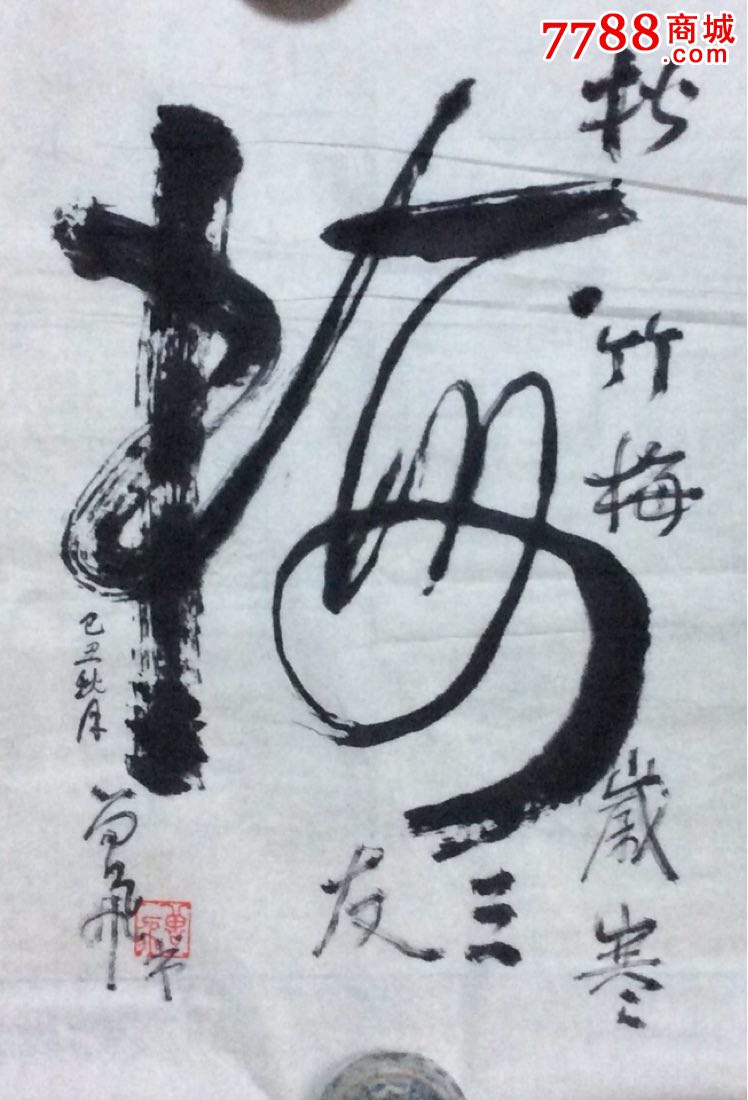 7788商城
.com
梅
松竹梅
歲寒
三
友
己丑秋月